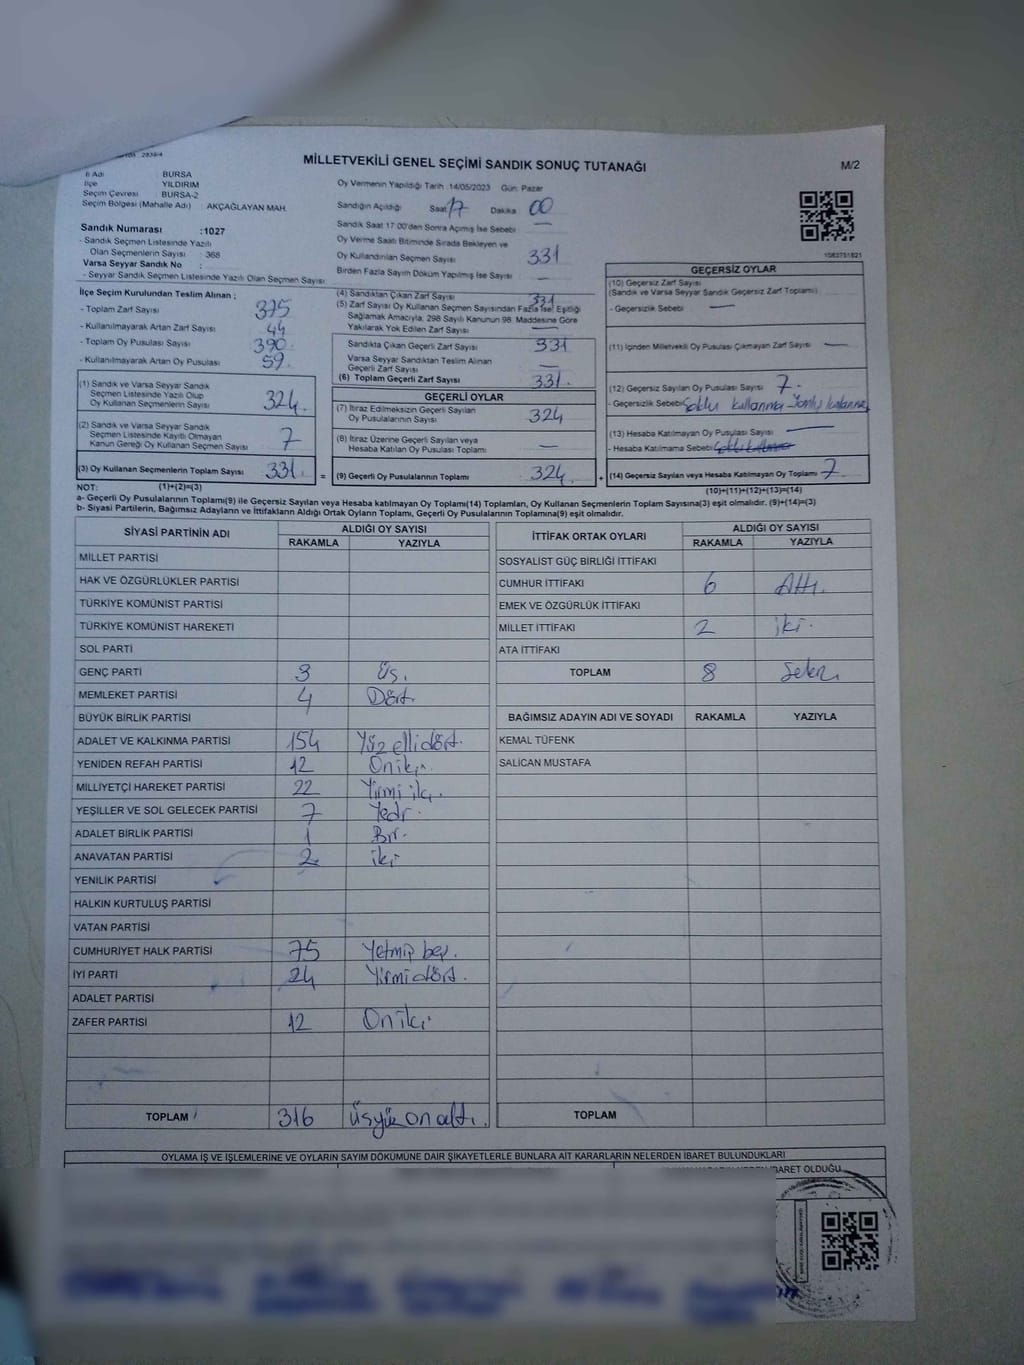 MİLLETVEKİLİ GENEL SEÇİMİ SANDIK SONUÇ TUTANAĞI
M/2
İl Adı BURSA
İlçe YILDIRIM
Seçim Çevresi BURSA-2
Seçim Bölgesi (Mahalle Adı) : AKÇAĞLAYAN MAH.
Sandık Numarası :1027
- Sandık Seçmen Listesinde Yazılı
Olan Seçmenlerin Sayısı : 368
Varsa Seyyar Sandık No :
- Seyyar Sandık Seçmen Listesinde Yazılı Olan Seçmen Sayısı
Oy Vermenin Yapıldığı Tarih :14/05/2023 Gün: Pazar
Sandığın Açıldığı Saat 17 Dakika 00
Sandık Saat 17:00'den Sonra Açılmış İse Sebebi —
Oy Verme Saati Bitiminde Sırada Bekleyen ve
Oy Kullandırılan Seçmen Sayısı : 331
Birden Fazla Sayım Döküm Yapılmış İse Sayısı —
İlçe Seçim Kurulundan Teslim Alınan ;
- Toplam Zarf Sayısı 375
- Kullanılmayarak Artan Zarf Sayısı 44
- Toplam Oy Pusulası Sayısı 390
- Kullanılmayarak Artan Oy Pusulası 59
(1) Sandık ve Varsa Seyyar Sandık
Seçmen Listesinde Yazılı Olup
Oy Kullanan Seçmenlerin Sayısı 324
(2) Sandık ve Varsa Seyyar Sandık
Seçmen Listesinde Kayıtlı Olmayan
Kanun Gereği Oy Kullanan Seçmen Sayısı 7
(3) Oy Kullanan Seçmenlerin Toplam Sayısı 331 =
(4) Sandıktan Çıkan Zarf Sayısı 331
(5) Zarf Sayısı Oy Kullanan Seçmen Sayısından Fazla İse; Eşitliği
Sağlamak Amacıyla, 298 Sayılı Kanunun 98. Maddesine Göre
Yakılarak Yok Edilen Zarf Sayısı —
Sandıkta Çıkan Geçerli Zarf Sayısı 331
Varsa Seyyar Sandıktan Teslim Alınan
Geçerli Zarf Sayısı —
(6) Toplam Geçerli Zarf Sayısı 331
GEÇERLİ OYLAR
(7) İtiraz Edilmeksizin Geçerli Sayılan
Oy Pusulalarının Sayısı 324
(8) İtiraz Üzerine Geçerli Sayılan veya
Hesaba Katılan Oy Pusulası Toplamı —
(9) Geçerli Oy Pusulalarının Toplamı 324 +
GEÇERSİZ OYLAR
(10) Geçersiz Zarf Sayısı
(Sandık ve Varsa Seyyar Sandık Geçersiz Zarf Toplamı)
- Geçersizlik Sebebi —
(11) İçinden Milletvekili Oy Pusulası Çıkmayan Zarf Sayısı —
(12) Geçersiz Sayılan Oy Pusulası Sayısı 7
- Geçersizlik Sebebi kullanma
(13) Hesaba Katılmayan Oy Pusulası Sayısı —
- Hesaba Katılmama Sebebi
(14) Geçersiz Sayılan veya Hesaba Katılmayan Oy Toplamı 7
NOT: (1)+(2)=(3)
(10)+(11)+(12)+(13)=(14)
a- Geçerli Oy Pusulalarının Toplamı(9) ile Geçersiz Sayılan veya Hesaba katılmayan Oy Toplamı(14) Toplamları, Oy Kullanan Seçmenlerin Toplam Sayısına(3) eşit olmalıdır. (9)+(14)=(3)
b- Siyasi Partilerin, Bağımsız Adayların ve İttifakların Aldığı Ortak Oyların Toplamı, Geçerli Oy Pusulalarının Toplamına(9) eşit olmalıdır.
SİYASİ PARTİNİN ADI ALDIĞI OY SAYISI
RAKAMLA YAZIYLA
MİLLET PARTİSİ
HAK VE ÖZGÜRLÜKLER PARTİSİ
TÜRKİYE KOMÜNİST PARTİSİ
TÜRKİYE KOMÜNİST HAREKETİ
SOL PARTİ
GENÇ PARTİ 3 Üç.
MEMLEKET PARTİSİ 4 Dört.
BÜYÜK BİRLİK PARTİSİ
ADALET VE KALKINMA PARTİSİ 154 Yüz elli dört.
YENİDEN REFAH PARTİSİ 12 Oniki.
MİLLİYETÇİ HAREKET PARTİSİ 22 Yirmi iki.
YEŞİLLER VE SOL GELECEK PARTİSİ 7 Yedi.
ADALET BİRLİK PARTİSİ 1 Bir.
ANAVATAN PARTİSİ 2 iki
YENİLİK PARTİSİ
HALKIN KURTULUŞ PARTİSİ
VATAN PARTİSİ
CUMHURİYET HALK PARTİSİ 75 Yetmiş beş.
İYİ PARTİ 24 Yirmi dört.
ADALET PARTİSİ
ZAFER PARTİSİ 12 On iki
TOPLAM 316 üçyüz on altı.
İTTİFAK ORTAK OYLARI ALDIĞI OY SAYISI
RAKAMLA YAZIYLA
SOSYALİST GÜÇ BİRLİĞİ İTTİFAKI
CUMHUR İTTİFAKI 6 Altı.
EMEK VE ÖZGÜRLÜK İTTİFAKI
MİLLET İTTİFAKI 2 iki.
ATA İTTİFAKI
TOPLAM 8 Sekiz
BAĞIMSIZ ADAYIN ADI VE SOYADI RAKAMLA YAZIYLA
KEMAL TÜFENK
SALİCAN MUSTAFA
TOPLAM
OYLAMA İŞ VE İŞLEMLERİNE VE OYLARIN SAYIM DÖKÜMÜNE DAİR ŞİKAYETLERLE BUNLARA AİT KARARLARIN NELERDEN İBARET BULUNDUKLARI
İBARET OLDUĞU